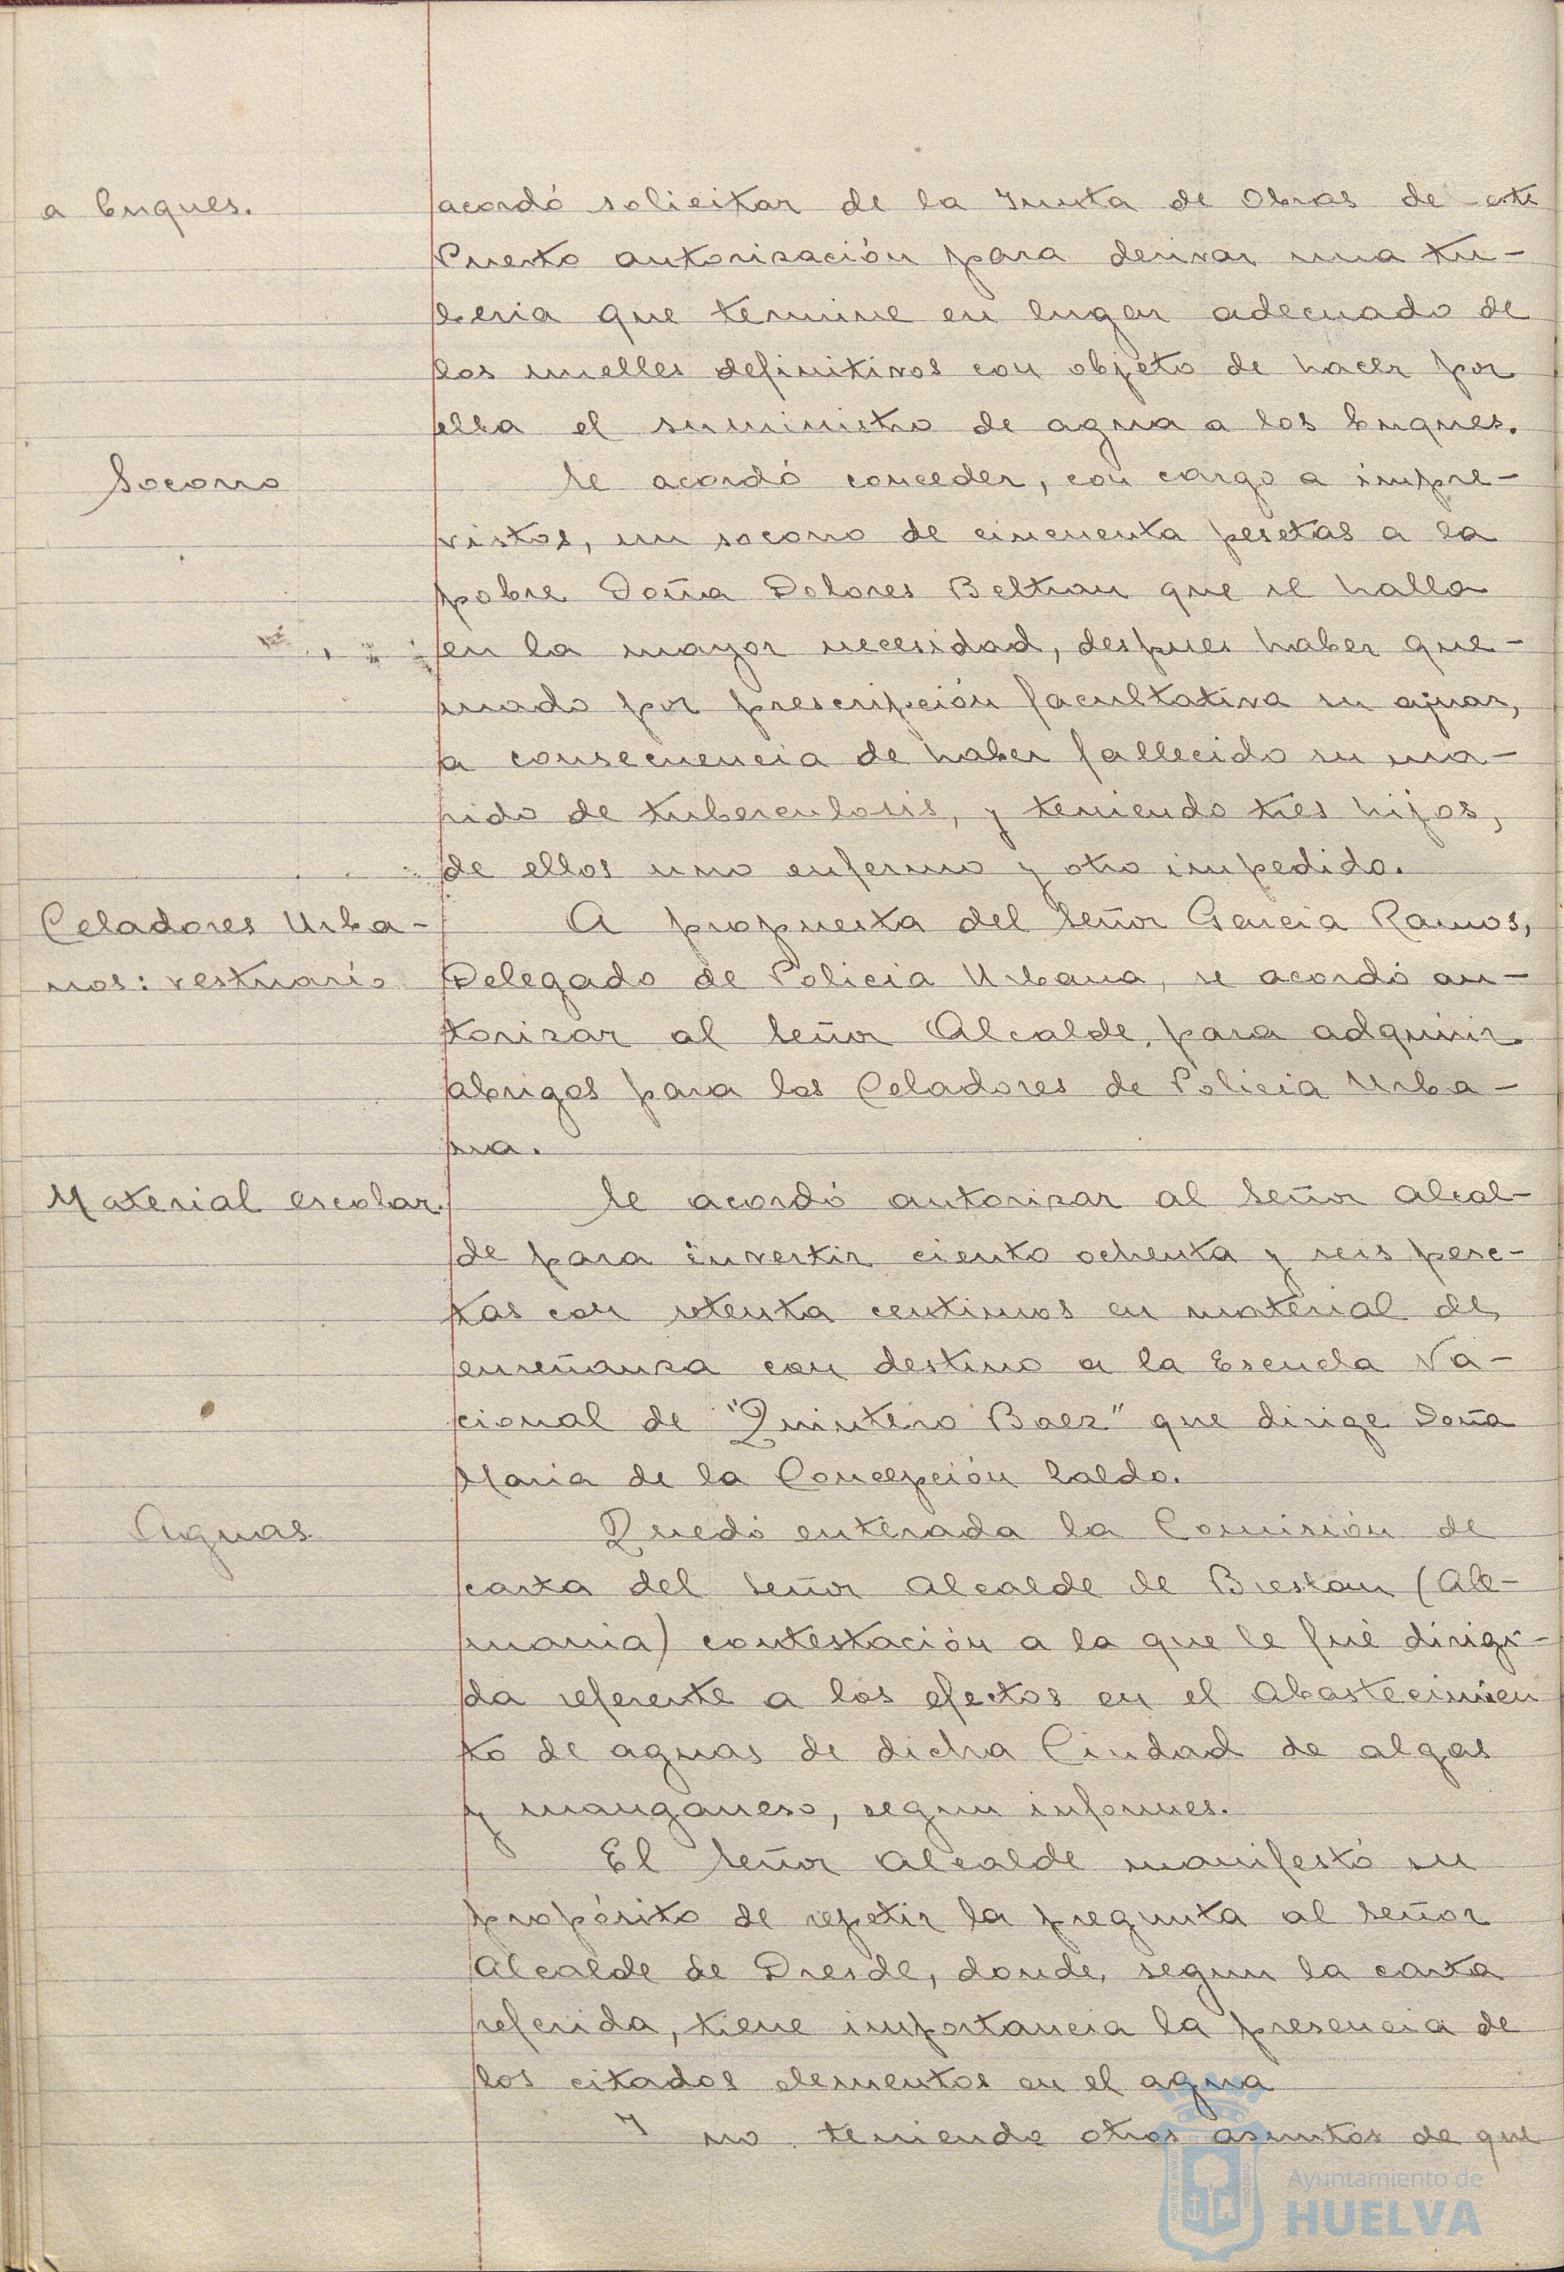 a buques.
acordó solicitar de la Junta de Obras de este
Puerto autorización para derivar una tu-
beria que termine en lugar adecuado de
los muelles definitivos con objeto de hacer por
ella el suministro de agua a los buques.
Socorro
Se acordó conceder, con cargo a impre-
vistos, un socorro de cincuenta pesetas a la
pobre Doña Dolores Beltran que se halla
en la mayor necesidad, despues haber que-
mado por prescripción facultativa su ajuar,
a consecuencia de haber fallecido su ma-
rido de tuberculosis, y teniendo tres hijos,
de ellos uno enfermo y otro impedido.
Celadores Urba-
nos: vestuario
A propuesta del Señor Garcia Ramos,
Delegado de Policia Urbana, se acordó au-
torizar al Señor Alcalde, para adquirir
abrigos para los Celadores de Policia Urba-
na.
Material escolar.
Se acordó autorizar al Señor Alcal-
de para invertir ciento ochenta y seis pese-
tas con setenta centimos en material de
enseñanza con destino a la Escuela Na-
cional de "Quintero Baez" que dirige Doña
Maria de la Concepción Saldo.
Aguas
Quedó enterada la Comisión de
carta del Señor Alcalde de Breslau (Ale-
mania) contestación a la que le fué dirigi-
da referente a los efectos en el Abastecimien
to de aguas de dicha Ciudad de algas
y manganeso, segun informes.
El Señor Alcalde manifestó su
propósito de repetir la pregunta al Señor
Alcalde de Dresde, donde, segun la carta
referida, tiene importancia la presencia de
los citados elementos en el agua
Y no teniendo otros asuntos de que
Ayuntamiento de
HUELVA